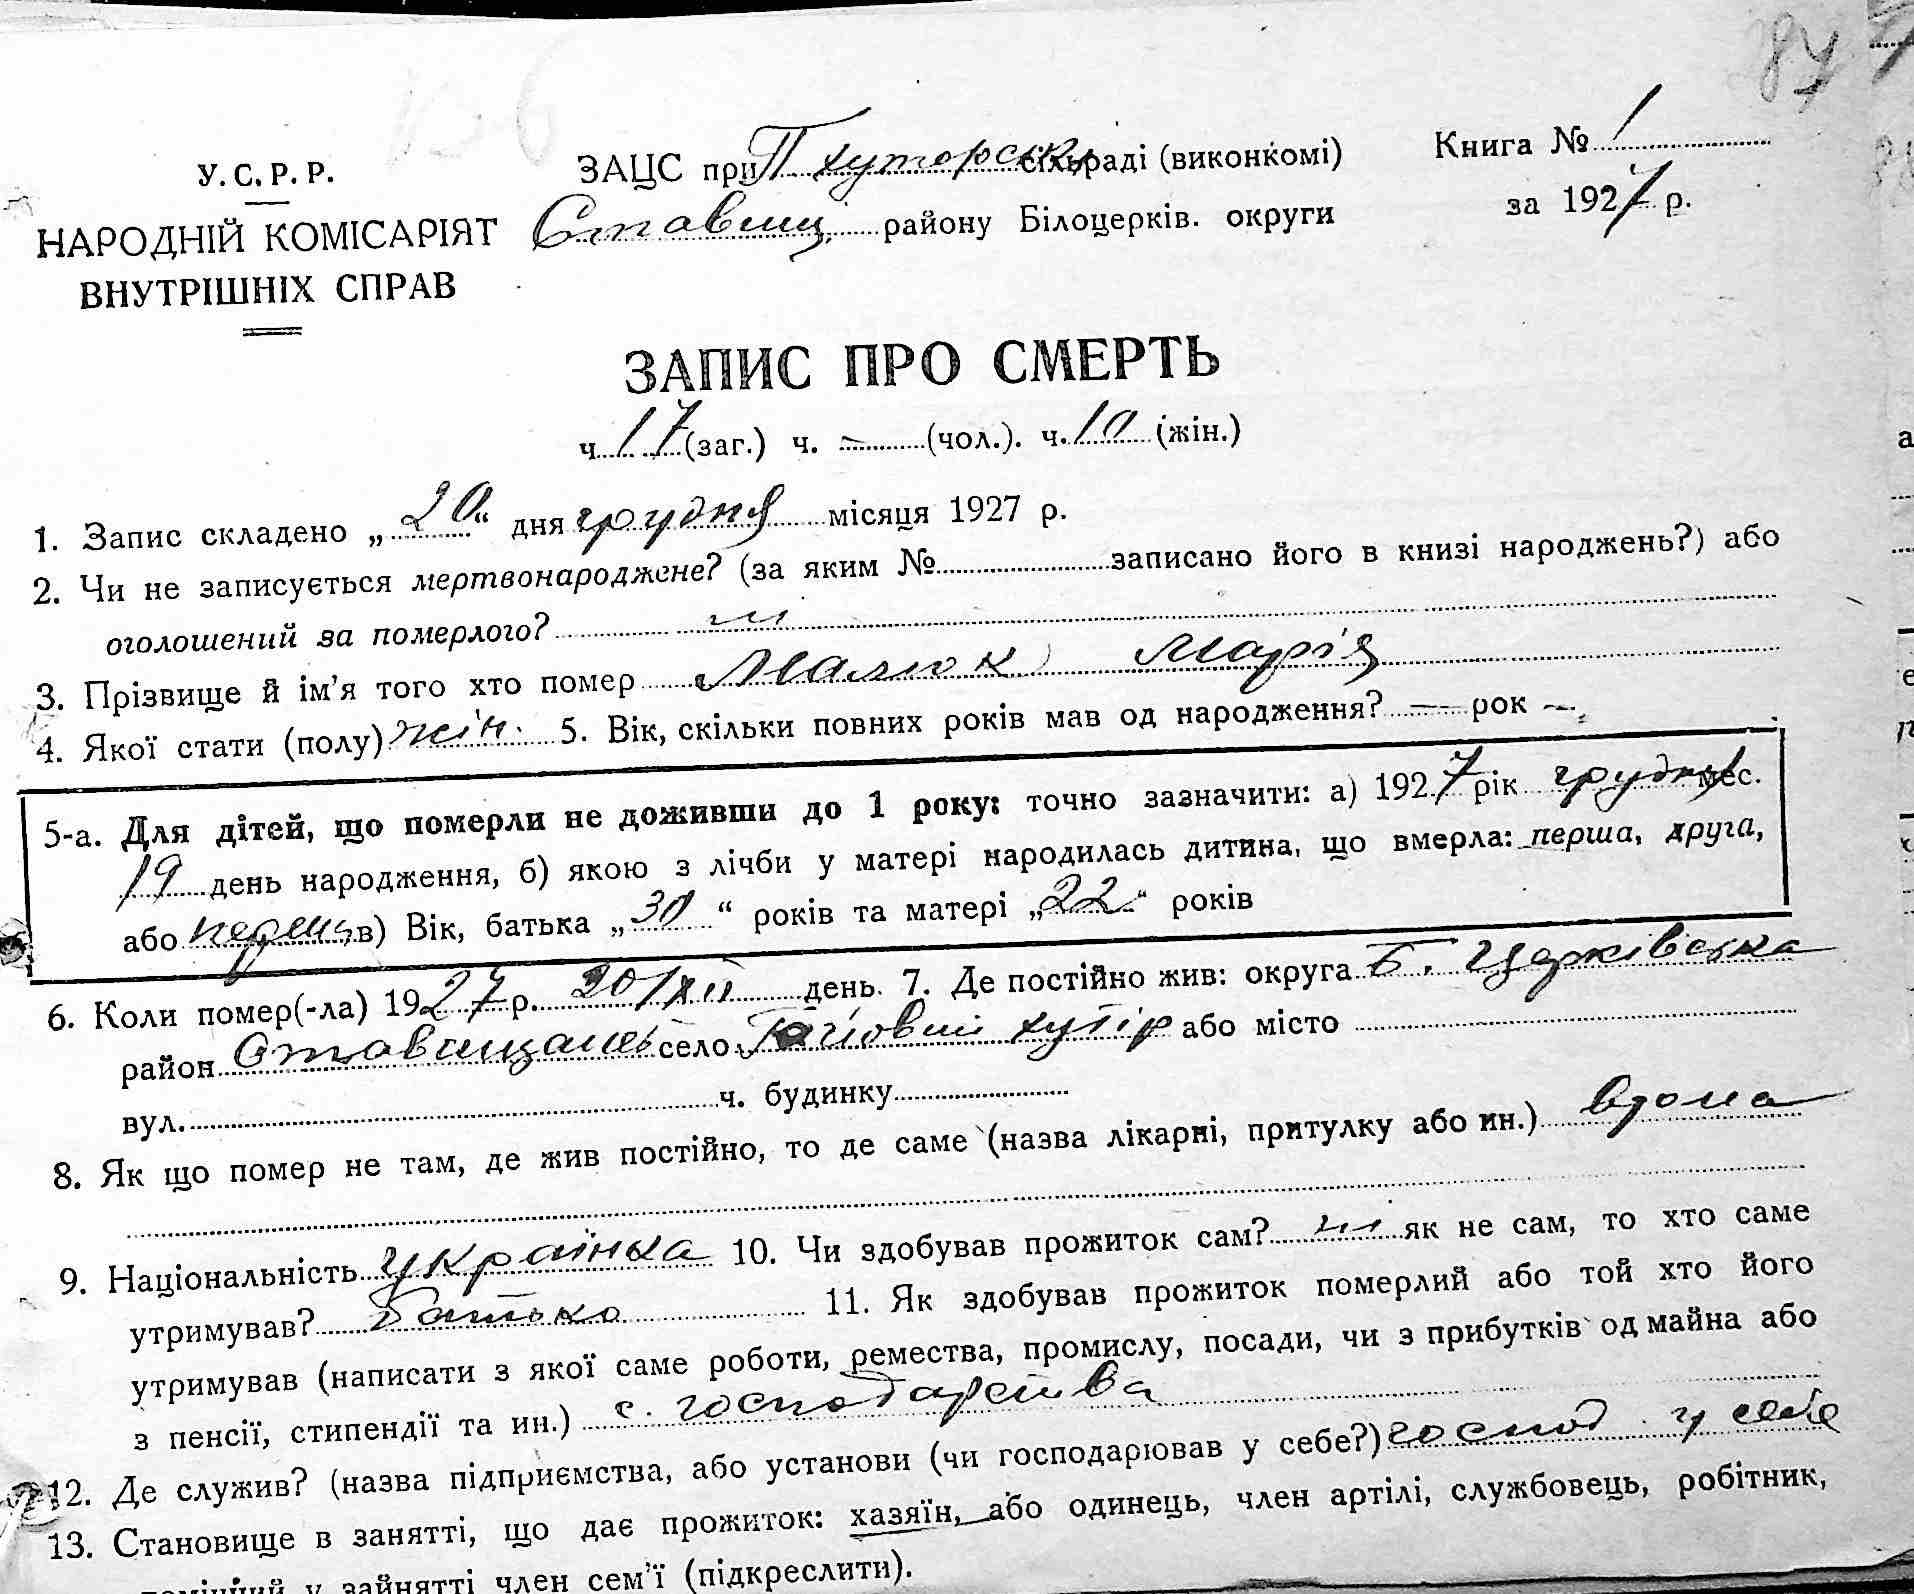 87
У. С. Р. Р.
НАРОДНІЙ КОМІСАРІЯТ
ВНУТРІШНІХ СПРАВ
ЗАЦС при П хуторськ сільраді (виконкомі)
Ставищ. району Білоцерків. округи
Книга № 1
за 1927 р.
ЗАПИС ПРО СМЕРТЬ
ч. 17 (заг.) ч. — (чол.). ч. 10 (жін.)
1. Запис складено „20“ дня грудня місяця 1927 р.
2. Чи не записується мертвонароджене? (за яким № записано його в книзі народжень?) або
оголошений за померлого? ні
3. Прізвище й ім’я того хто помер Малюк Марія
4. Якої стати (полу) жін. 5. Вік, скільки повних років мав од народження? — рок —
5-а. Для дітей, що померли не доживши до 1 року: точно зазначити: а) 1927 рік грудня мес.
19 день народження, б) якою з лічби у матері народилась дитина, що вмерла: перша, друга,
або перша, в) Вік, батька „30“ років та матері „22“ років
6. Коли помер(-ла) 1927 р. 20/XII день. 7. Де постійно жив: округа Б. Церківська
район Ставищанськ село хутір або місто
вул. ч. будинку
8. Як що помер не там, де жив постійно, то де саме (назва лікарні, притулку або ин.) вдома
9. Національність українка 10. Чи здобував прожиток сам? ні як не сам, то хто саме
утримував? Батько 11. Як здобував прожиток померлий або той хто його
утримував (написати з якої саме роботи, ремества, промислу, посади, чи з прибутків од майна або
з пенсії, стипендії та ин.) с. господарства
12. Де служив? (назва підприємства, або установи (чи господарював у себе?) господ. у себе
13. Становище в занятті, що дає прожиток: хазяїн, або одинець, член артілі, службовець, робітник,
помічний у зайнятті член сем’ї (підкреслити).